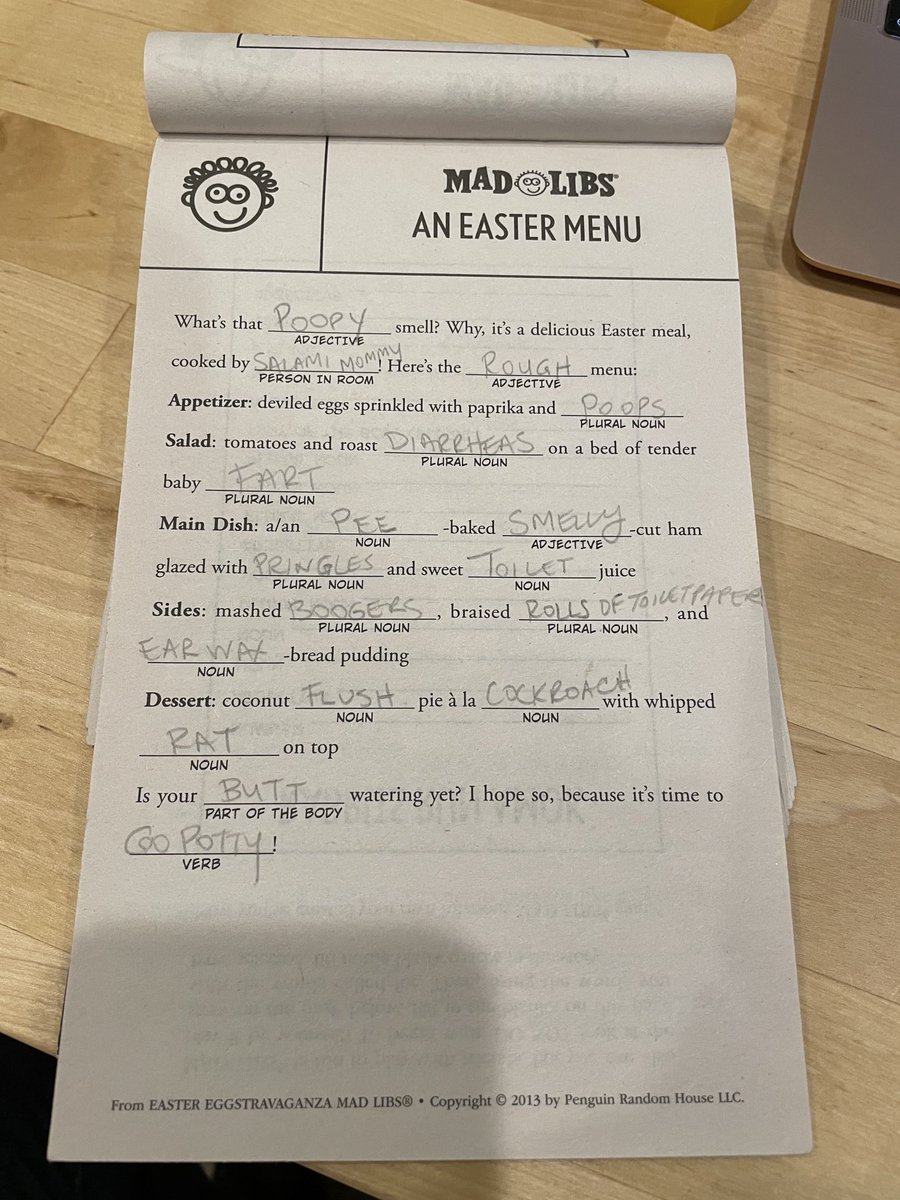 MAD LIBS®
AN EASTER MENU
What's that POOPY smell? Why, it's a delicious Easter meal,
ADJECTIVE
cooked by SALAMI MOMMY! Here's the ROUGH menu:
PERSON IN ROOM ADJECTIVE
Appetizer: deviled eggs sprinkled with paprika and POOPS
PLURAL NOUN
Salad: tomatoes and roast DIARRHEAS on a bed of tender
PLURAL NOUN
baby FART
PLURAL NOUN
Main Dish: a/an PEE -baked SMELLY-cut ham
NOUN ADJECTIVE
glazed with PRINGLES and sweet TOILET juice
PLURAL NOUN NOUN
Sides: mashed BOOGERS, braised ROLLS OF TOILET PAPER, and
PLURAL NOUN PLURAL NOUN
EAR WAX-bread pudding
NOUN
Dessert: coconut FLUSH pie à la COCKROACH with whipped
NOUN NOUN
RAT on top
NOUN
Is your BUTT watering yet? I hope so, because it's time to
PART OF THE BODY
GO POTTY!
VERB
From EASTER EGGSTRAVAGANZA MAD LIBS® • Copyright © 2013 by Penguin Random House LLC.